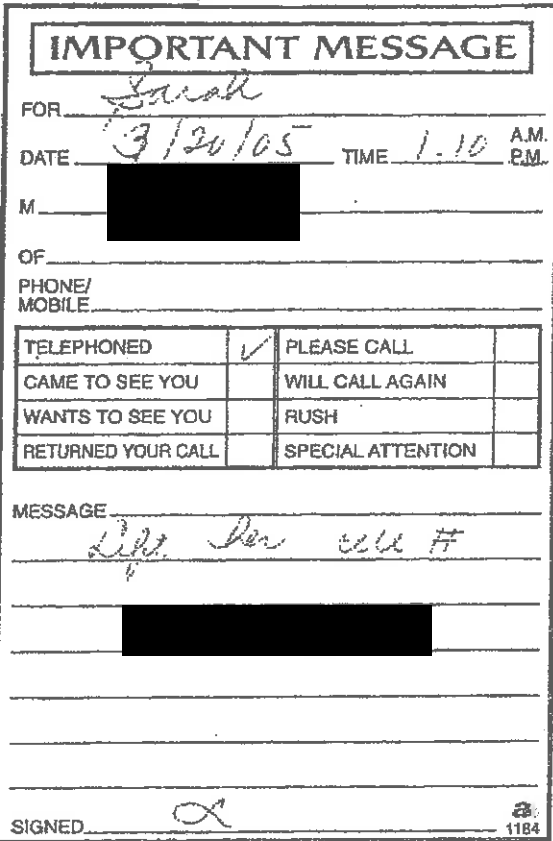 IMPORTANT MESSAGE
FOR Sarah
DATE 3/20/05 TIME 1.10 A.M. P.M.
M
OF
PHONE/
MOBILE
TELEPHONED ✓ PLEASE CALL
CAME TO SEE YOU WILL CALL AGAIN
WANTS TO SEE YOU RUSH
RETURNED YOUR CALL SPECIAL ATTENTION
MESSAGE
Left her cell #
SIGNED
a
1184